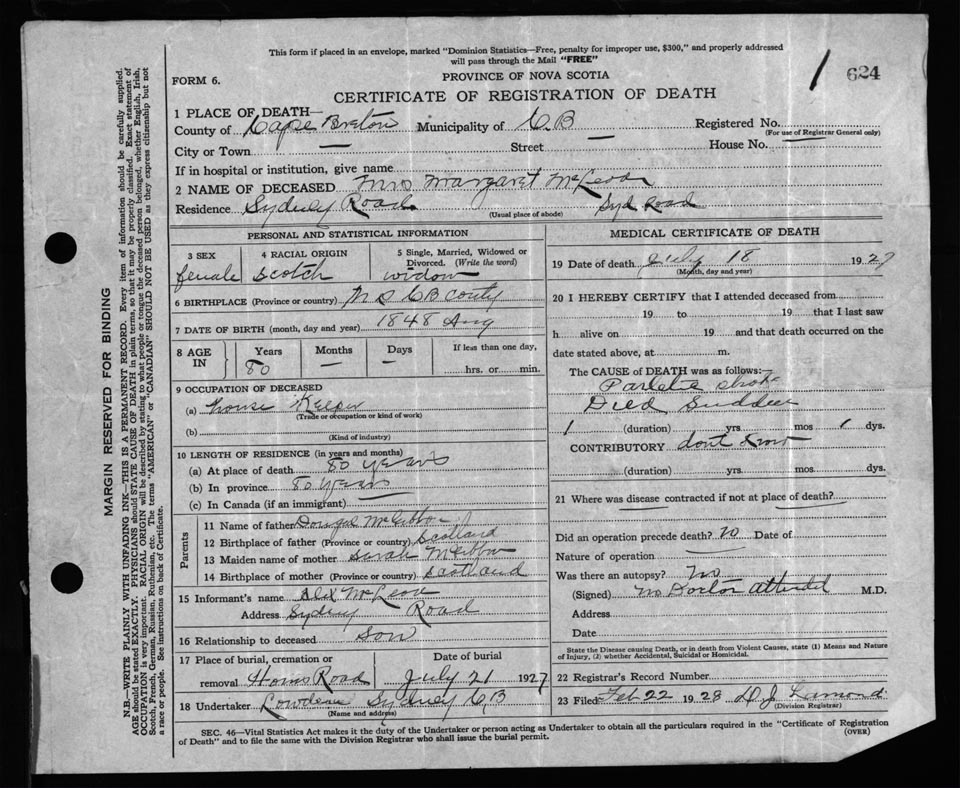 This form if placed in an envelope, marked "Dominion Statistics—Free, penalty for improper use, $300," and properly addressed
will pass through the Mail "FREE"
1 624
FORM 6.
PROVINCE OF NOVA SCOTIA
CERTIFICATE OF REGISTRATION OF DEATH
1 PLACE OF DEATH—
County of Cape Breton Municipality of C B Registered No.
(For use of Registrar General only)
City or Town — Street — House No. —
If in hospital or institution, give name
2 NAME OF DECEASED Mrs Margaret McLeod
Residence Sydney Road Syd Road
(Usual place of abode)
PERSONAL AND STATISTICAL INFORMATION
3 SEX
female
4 RACIAL ORIGIN
Scotch
5 Single, Married, Widowed or
Divorced. (Write the word)
widow
6 BIRTHPLACE (Province or country) N S C B conty
7 DATE OF BIRTH (month, day and year) 1848 Aug
8 AGE
IN
Years
80
Months
—
Days
—
If less than one day,
hrs. or min.
9 OCCUPATION OF DECEASED
(a) house Keeper
(Trade or occupation or kind of work)
(b)
(Kind of industry)
10 LENGTH OF RESIDENCE (in years and months)
(a) At place of death 80 years
(b) In province 80 years
(c) In Canada (if an immigrant)
Parents
11 Name of father
12 Birthplace of father (Province or country) Scotland
13 Maiden name of mother Sarah
14 Birthplace of mother (Province or country) Scotland
15 Informant's name Alex McLeod
Address Sydney Road
16 Relationship to deceased Son
17 Place of burial, cremation or
removal Homs Road
Date of burial
July 21 1927
18 Undertaker Sydney C,B
(Name and address)
MEDICAL CERTIFICATE OF DEATH
19 Date of death July 18 1927
(Month, day and year)
20 I HEREBY CERTIFY that I attended deceased from
19 to 19 that I last saw
h alive on 19 and that death occurred on the
date stated above, at m.
The CAUSE of DEATH was as follows:—
Died Sudden
1 (duration) yrs mos 1 dys.
CONTRIBUTORY dont know
(duration) yrs. mos. dys.
21 Where was disease contracted if not at place of death?
Did an operation precede death? no Date of
Nature of operation
Was there an autopsy? No
(Signed) no Doctor attendd M.D.
Address
Date
State the Disease causing Death, or in death from Violent Causes, state (1) Means and Nature
of Injury, (2) whether Accidental, Suicidal or Homicidal.
22 Registrar's Record Number
23 Filed Feb 22 1928 D. J. Lamond
(Division Registrar)
SEC. 46—Vital Statistics Act makes it the duty of the Undertaker or person acting as Undertaker to obtain all the particulars required in the "Certificate of Registration
of Death" and to file the same with the Division Registrar who shall issue the burial permit.
(OVER)
MARGIN RESERVED FOR BINDING
N.B.—WRITE PLAINLY WITH UNFADING INK—THIS IS A PERMANENT RECORD. Every item of information should be carefully supplied.
AGE should be stated EXACTLY. PHYSICIANS should STATE CAUSE OF DEATH in plain terms, so that it may be properly classified. Exact statement of
OCCUPATION is very important. RACIAL ORIGIN will be described by stating to what people or tongue the deceased person belonged, whether English, Irish,
Scotch, French, German, Russian, Ruthenian, etc. The terms "AMERICAN" or "CANADIAN" SHOULD NOT BE USED as they express citizenship but not
a race or people. See instructions on back of Certificate.